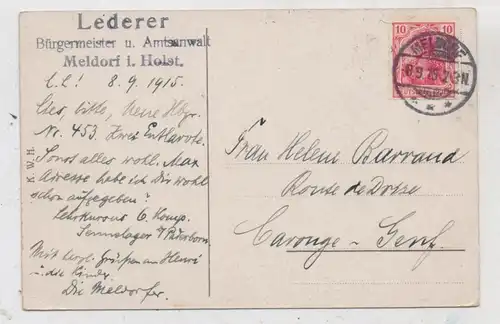 Lederer
Bürgermeister u. Amtsanwalt
Meldorf i. Holst.
L.L! 8.9.1915.
bitte, neue
Nr. 453. Zwei
Sonst alles wohl. Max
Adresse habe ich Dir wohl
schon aufgegeben?
6. Komp.
Sennelager b/ Paderborn.
Mit herzl. Grüßen an Henri
u. die Kinder
Die Meldorfer.
K. W. H.
10 10
MELDORF
8.9.15.
Frau Helene Barraud
Route de Drize
Carouge - Genf.